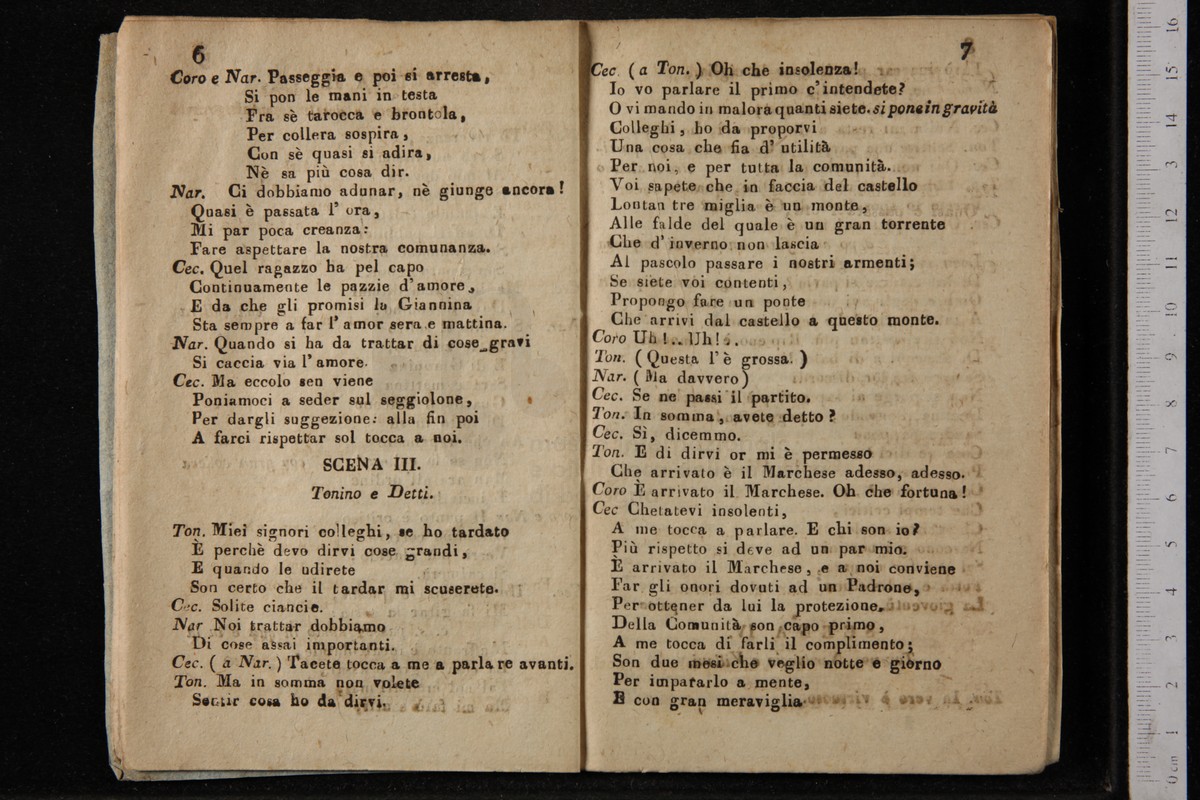 6
Coro e Nar. Passeggia e poi si arresta,
Si pon le mani in testa
Fra sè tarocca e brontola,
Per collera sospira,
Con sè quasi si adira,
Nè sa più cosa dir.
Nar. Ci dobbiamo adunar, nè giunge ancora!
Quasi è passata l' ora,
Mi par poca creanza:
Fare aspettare la nostra comunanza.
Cec. Quel ragazzo ha pel capo
Continuamente le pazzie d' amore,
E da che gli promisi la Giannina
Sta sempre a far l' amor sera e mattina.
Nar. Quando si ha da trattar di cose gravi
Si caccia via l' amore.
Cec. Ma eccolo sen viene
Poniamoci a seder sul seggiolone,
Per dargli suggezione: alla fin poi
A farci rispettar sol tocca a noi.
SCENA III.
Tonino e Detti.
Ton. Miei signori colleghi, se ho tardato
È perchè devo dirvi cose grandi,
E quando le udirete
Son certo che il tardar mi scuserete.
Cec. Solite ciancie.
Nar Noi trattar dobbiamo
Di cose assai importanti.
Cec. ( a Nar. ) Tacete tocca a me a parlare avanti.
Ton. Ma in somma non volete
Sentir cosa ho da dirvi.
7
Cec ( a Ton. ) Oh che insolenza!
Io vo parlare il primo c' intendete?
O vi mando in malora quanti siete. si pone in gravità
Colleghi, ho da proporvi
Una cosa che fia d' utilità
Per noi, e per tutta la comunità.
Voi sapete che in faccia del castello
Lontan tre miglia è un monte,
Alle falde del quale è un gran torrente
Che d' inverno non lascia
Al pascolo passare i nostri armenti;
Se siete voi contenti,
Propongo fare un ponte
Che arrivi dal castello a questo monte.
Coro Uh!.. Uh!..
Ton. ( Questa l' è grossa. )
Nar. ( Ma davvero )
Cec. Se ne passi il partito.
Ton. In somma, avete detto?
Cec. Sì, dicemmo.
Ton. E di dirvi or mi è permesso
Che arrivato è il Marchese adesso, adesso.
Coro È arrivato il Marchese. Oh che fortuna!
Cec Chetatevi insolenti,
A me tocca a parlare. E chi son io?
Più rispetto si deve ad un par mio.
È arrivato il Marchese, e a noi conviene
Far gli onori dovuti ad un Padrone,
Per ottener da lui la protezione.
Della Comunità son capo primo,
A me tocca di farli il complimento;
Son due mesi che veglio notte e giorno
Per impararlo a mente,
E con gran meraviglia